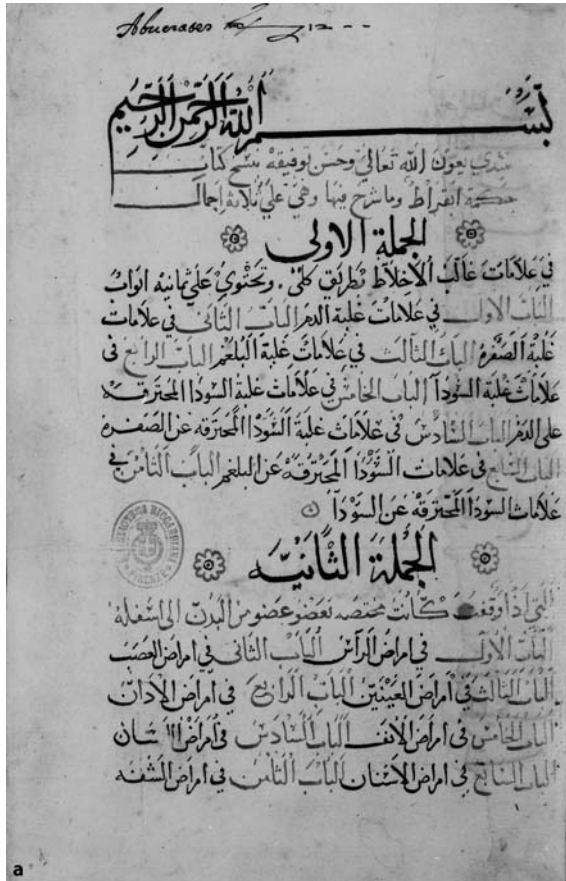 Abucrases
بسم الله الرحمن الرحيم
نبتدي بعون الله تعالى وحسن توفيقه بنسخ كتاب
حكمة ابقراط وما شرح فيها وهي علي ثلاثة اجمال
الجملة الاولى
في علامات غالب الأخلاط بطريق كلى وتحتوي علي ثمانية ابواب
الباب الاول في علامات غلبة الدم الباب الثاني في علامات
غلبة الصفره الباب الثالث في علامات غلبة البلغم الباب الرابع في
علامات غلبة السودا الباب الخامس في علامات غلبة السودا المحترقه
على الدم الباب السادس في علامات غلبة السودا المحترقه عن الصفره
الباب السابع في علامات السودا المحترقه عن البلغم الباب الثامن في
علامات السودا المحترقه عن السودا
الجملة الثانيه
التي اذا وقعت كانت مختصه بعضو عضو من البدن الى اسفله
الباب الاول في امراض الراس الباب الثاني في امراض العصب
الباب الثالث في امراض العينين الباب الرابع في امراض الاذان
الباب الخامس في امراض الانف الباب السادس في امراض
الباب السابع في امراض الاسنان الباب الثامن في امراض الشفه
BIBLIOTECA RICCARDIANA FIRENZE
a